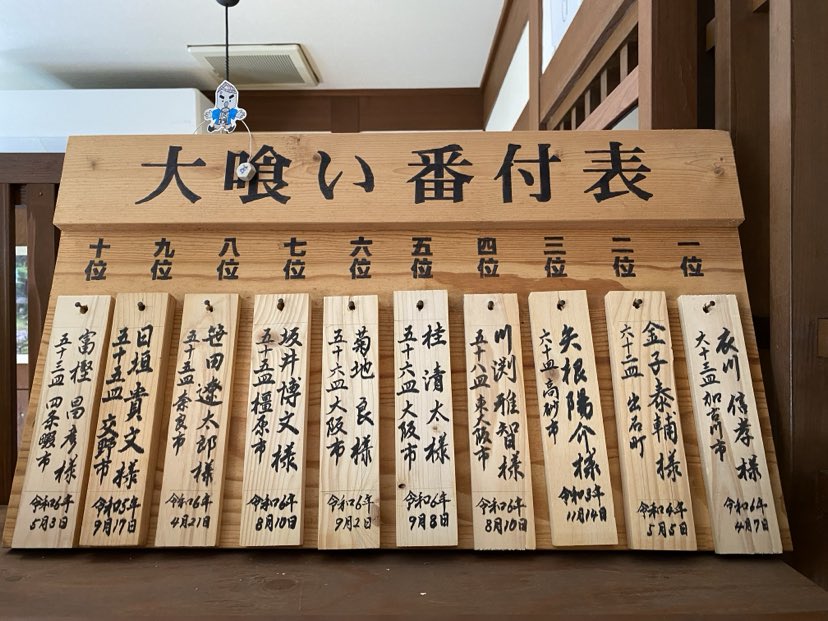 大喰い番付表
一位
衣川 信孝様
六十三皿 加古川市
令和6年
4月7日
二位
金子泰輔様
六十二皿 出石町
令和4年
5月5日
三位
矢根陽介様
六十皿 高砂市
令和3年
11月14日
四位
川渕雅智様
五十八皿 東大阪市
令和6年
8月10日
五位
桂 清太様
五十六皿 大阪市
令和6年
9月8日
六位
菊地 良様
五十六皿 大阪市
令和6年
9月2日
七位
坂井博文様
五十五皿 橿原市
令和6年
8月10日
八位
笹田遼太郎様
五十五皿 奈良市
令和6年
4月21日
九位
日垣貴文様
五十五皿 交野市
令和5年
9月17日
十位
富樫 昌彦様
五十三皿 四条畷市
令和6年
5月3日